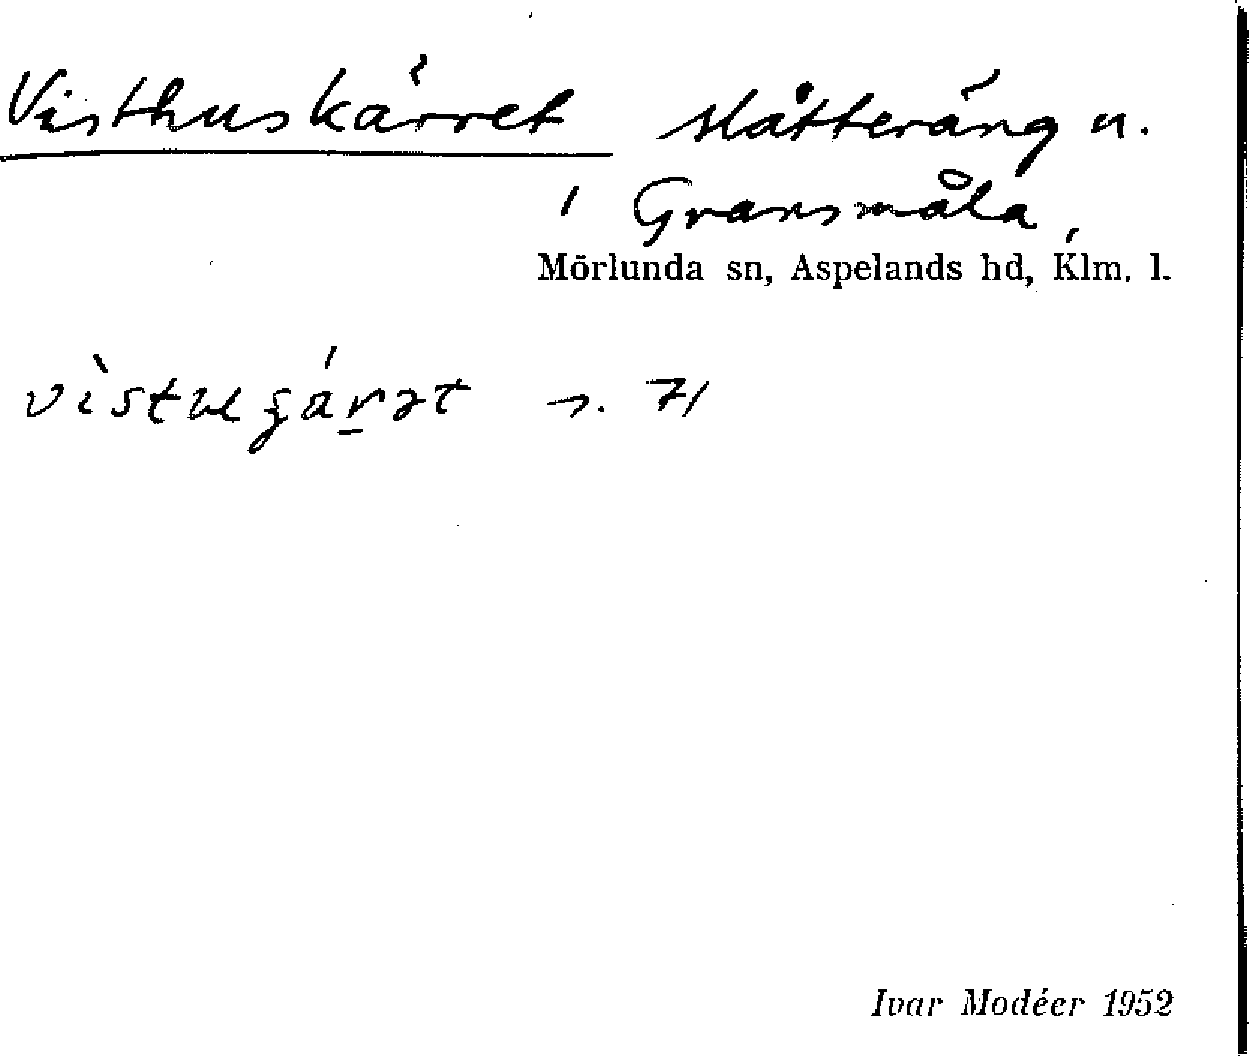 Visthuskärret slåtteräng n.
i Gransmåla,
Mörlunda sn, Aspelands hd, Klm. l.
s. 71
Ivar Modéer 1952